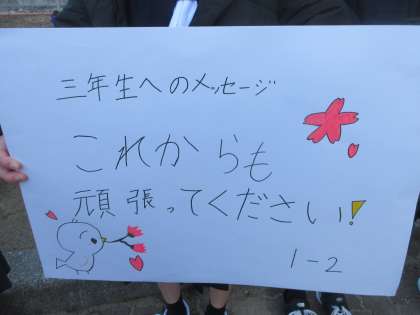 三年生へのメッセージ
これからも
頑張ってください!
1-2